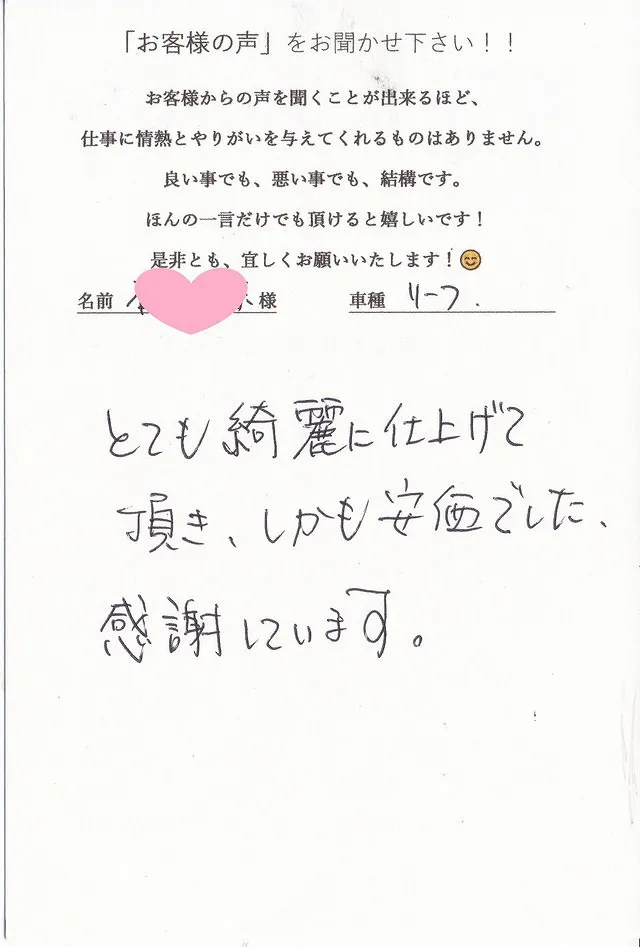 「お客様の声」をお聞かせ下さい！！
お客様からの声を聞くことが出来るほど、
仕事に情熱とやりがいを与えてくれるものはありません。
良い事でも、悪い事でも、結構です。
ほんの一言だけでも頂けると嬉しいです！
是非とも、宜しくお願いいたします！😊
名前 様 車種 リーフ.
とても綺麗に仕上げて
頂き、しかも安価でした、
感謝しています。